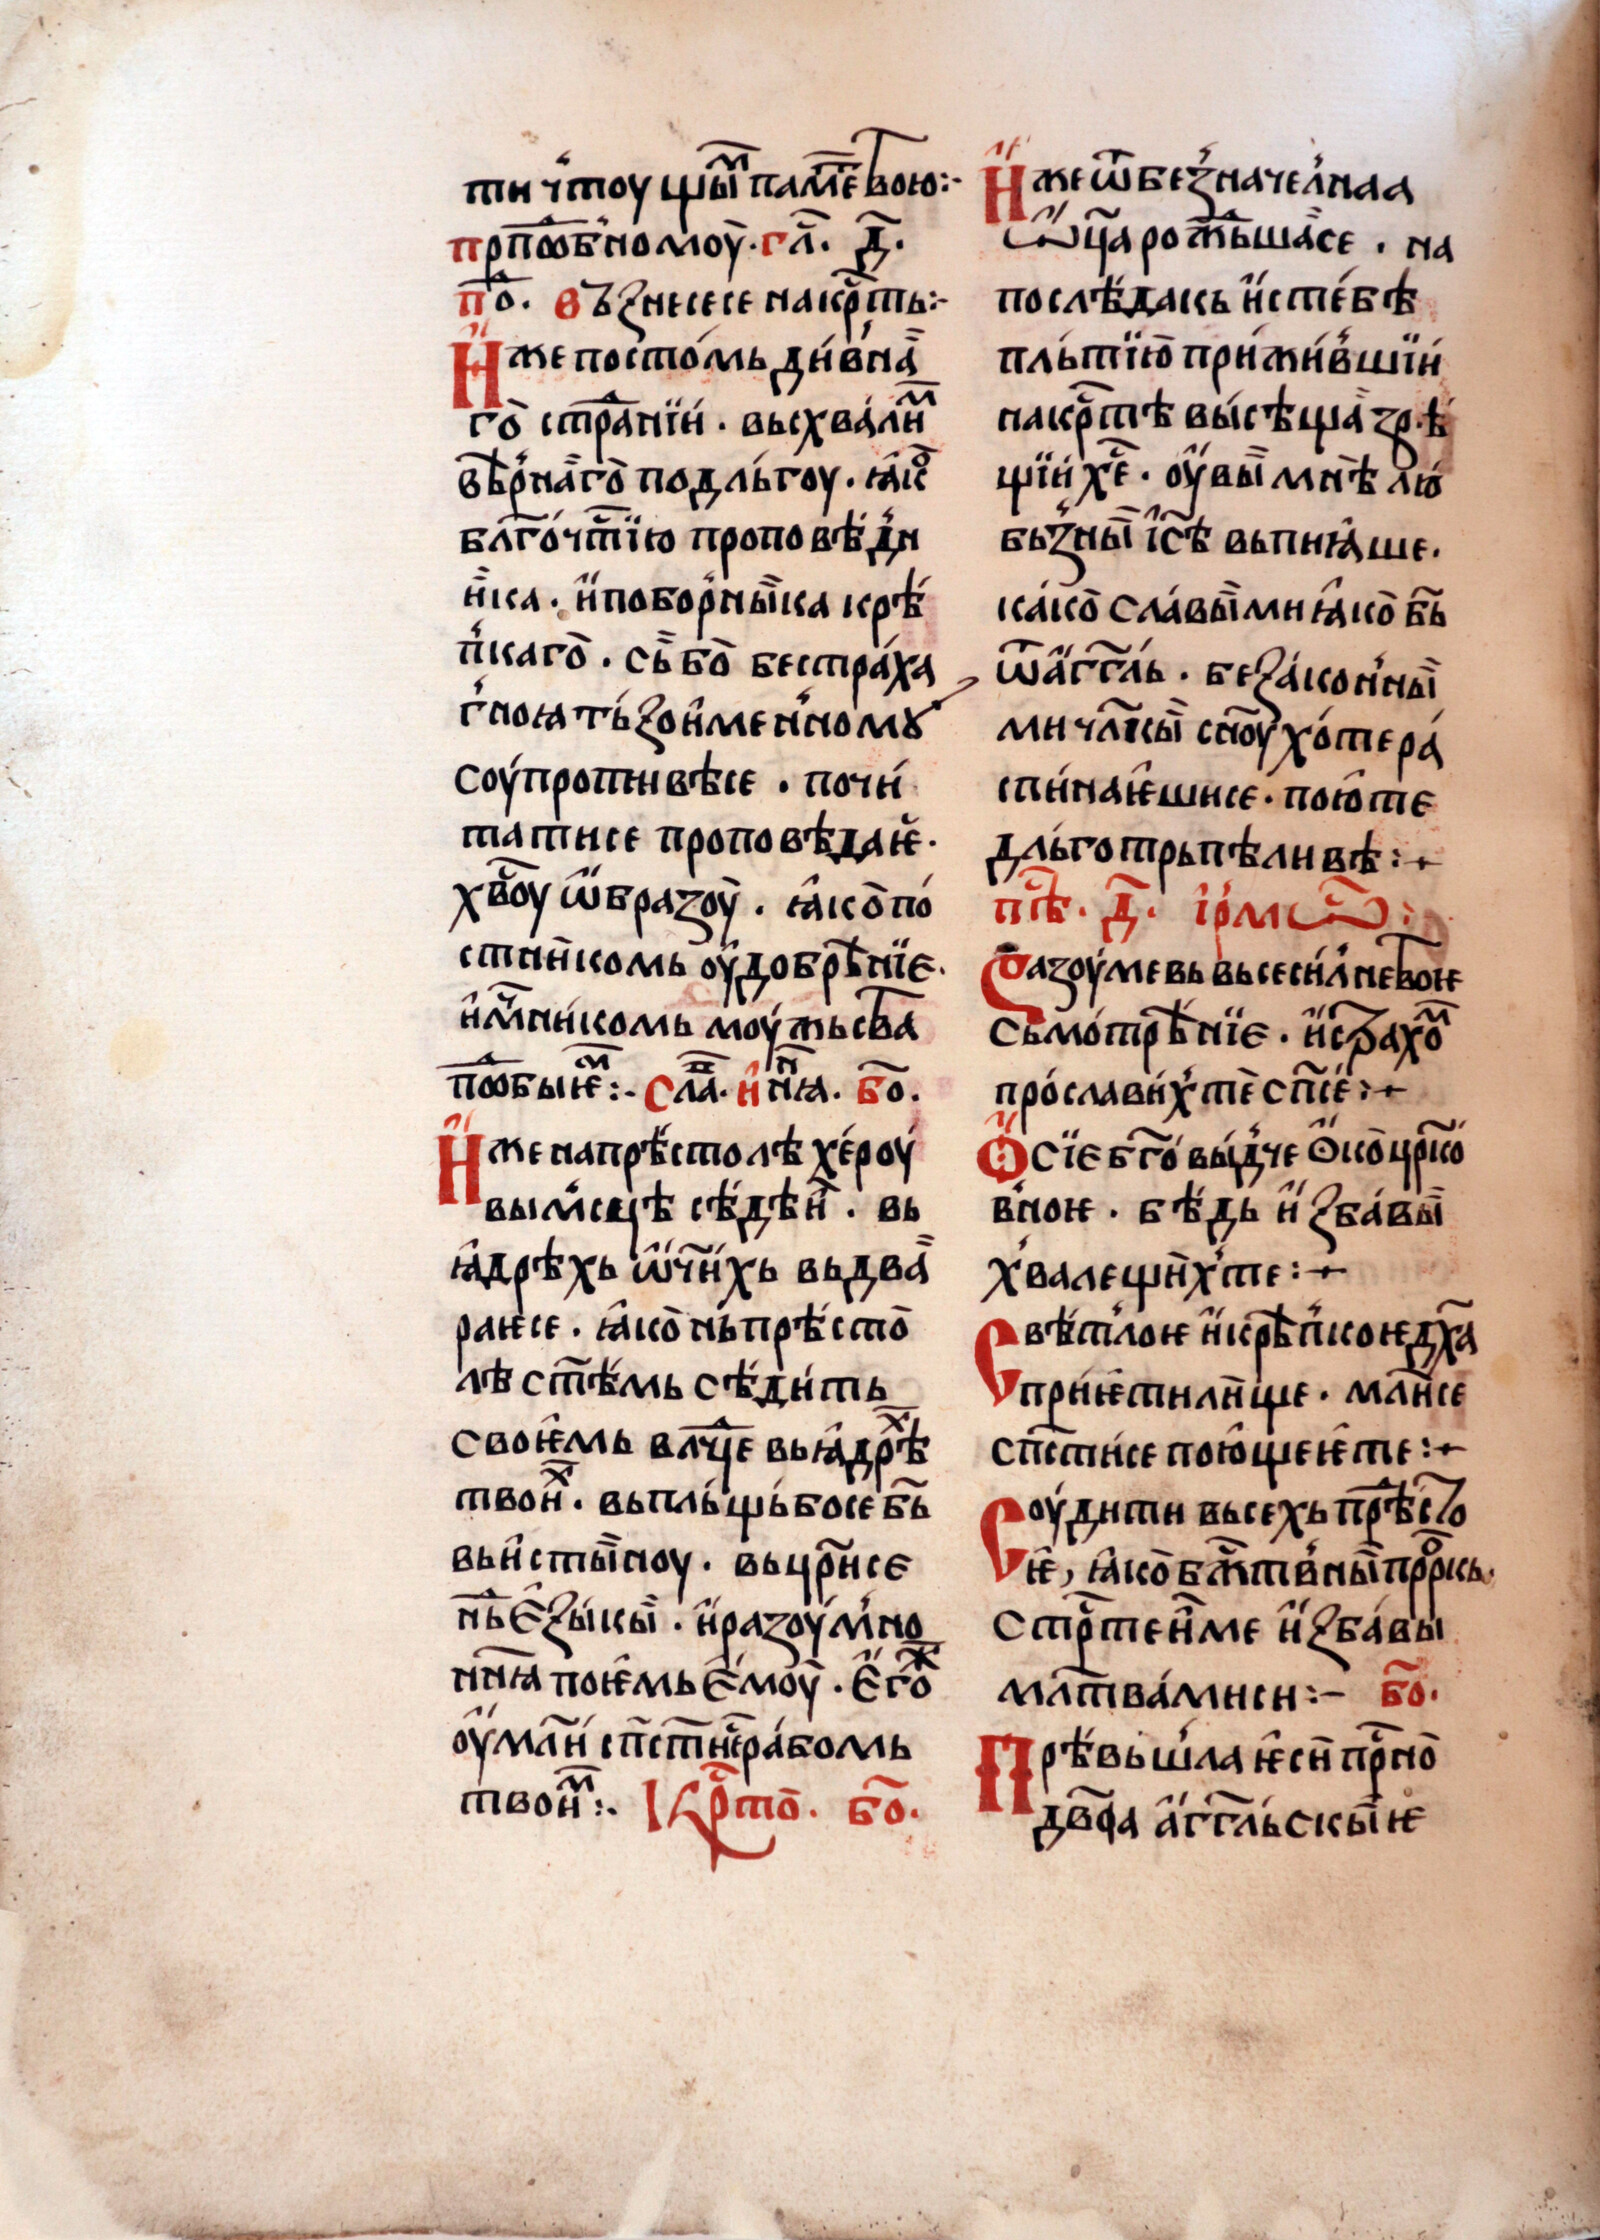 ти ч́тоу щы̏ⷨ паме̑ т̾вою:-
прпⷣобномоу̀· гл҃· д҃·
по́ⷣ· въꙁнесе се на крⷭ҇ть:-
И҆́же посто́мь ди́в̾на̏
го̀ стра́нїи· въсхва́лиⷨ
вѣ́р̾на̏го̀ по дль́гоу· ꙗ҆́коⷤ
бл҃го́чⷭ҇тїю пропо вѣ́д̾и
н̏ка· и҆̀ побор̾ны̏ка крѣ́
п̾каго̀· сь̏ бо̀ бестра́ха
г̾ноꙗ ть́ꙁои҆менномꙋ
соу́противѣ се· почи́
тати се пропо вѣдаѥ·
хвⷭ҇оу ѡ҆́браꙁоу̀· ꙗ҆́ко̀ по́
стн̏икомь оу҆добрѣ́нїе·
и҆ мⷱ҇ни́комь моу́жьства
пⷣобыѥⷨ:· сла̑ⷡ· и҆ нн҃ꙗ· бо҃·
И҆́же на прѣ́столѣ хе́роу
вы́м̾сцѣ сѣ́дѣи̏· вь
ꙗ҆́дрѣхь ѡ҆́ч҃и́хь вьдва̏
раѥ се· ꙗ҆́ко̀ нь́ прѣ́сто̀
лѣ ст҃ѣ́мь сѣ́дить
своѥ҆мь влⷣце вь ꙗ҆́дрѣⷯ
твоиⷯ· вьпль́щь бо се б҃ь
вь и҆́сты̏ноу· вьцр҃и се
нⷣь еꙁы́кы̏· и҆̀ раꙁоу́м̾но
нн҃ꙗ поѥ҆мь е҆моу̀· е҆̀гоⷤ
оу҆̀мл҃и́ сп҃сти́ ра́бомь
твоиⷨ:· І крⷭ҇то̀· бо҃·
И҆́же ѿ беꙁначел̾наа
ѡ҆́ц҃а рож́ьша̏ се· на
послѣ́дакь и҆с тебѣ
пльтїю̀ прижи́вшїи
на крⷭ҇тѣ вы́сѣща̏ ꙁрѣ
щїи хⷭ҇е· оу҆вы̏ мнѣ лю́
бьꙁ̾ны̏ і҆с҃ѣ вьпиꙗ҆ше·
ка́ко̀ сла́вы̏ми ꙗ҆ко̀ б҃ь
ѿ а҆́гг҃ль· беꙁа́кон̾ны̏
ми чл҃кы̏ сн҃оу хо́те ра́
спи́наѥ҆ши се· пою҆ те
дль́готрьпѣливѣ:·
пѣⷭ҇· д҃· і҆рмⷭ҇ѡ:
Раꙁоу́ме вь вьсесил̾не твоѥ
сьмо́трѣ́нїе· и҆ страхоⷨ
про́слави́х̾ те̏ сп҃се́:·
Ѡ҆́сїе б҃го́ вы́д̾че ѡ҆́ко̀ црк҃о́
в̾ноѥ· бѣ́дь и҆ꙁба́вы̏
х̾валещи́х̾ те:·
Свѣ́т̾лоѥ и҆ крѣ́п̾коѥ дх҃а
при́ѥ҆тили́ще· мл҃и́ се
сп҃сти́ се пою҆ще ѥ҆ те:·
Соу́дити вьсехь прѣ́сто
ѥ, ꙗ҆́ко̀ бжⷭ҇т̾вны̏ пррⷪ҇кь·
стрⷭ҇те и҆̏ме и҆ꙁба́вы
млт҃ва́ми си:- бо҃·
Прѣ́вьшла ѥ҆си прⷭ҇но̀
дв҃а а҆́гг҃льскы̏ѥ